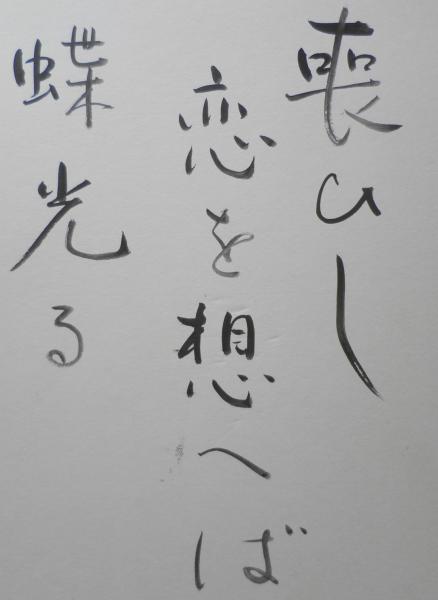 喪ひし
恋を想へば
蝶光る